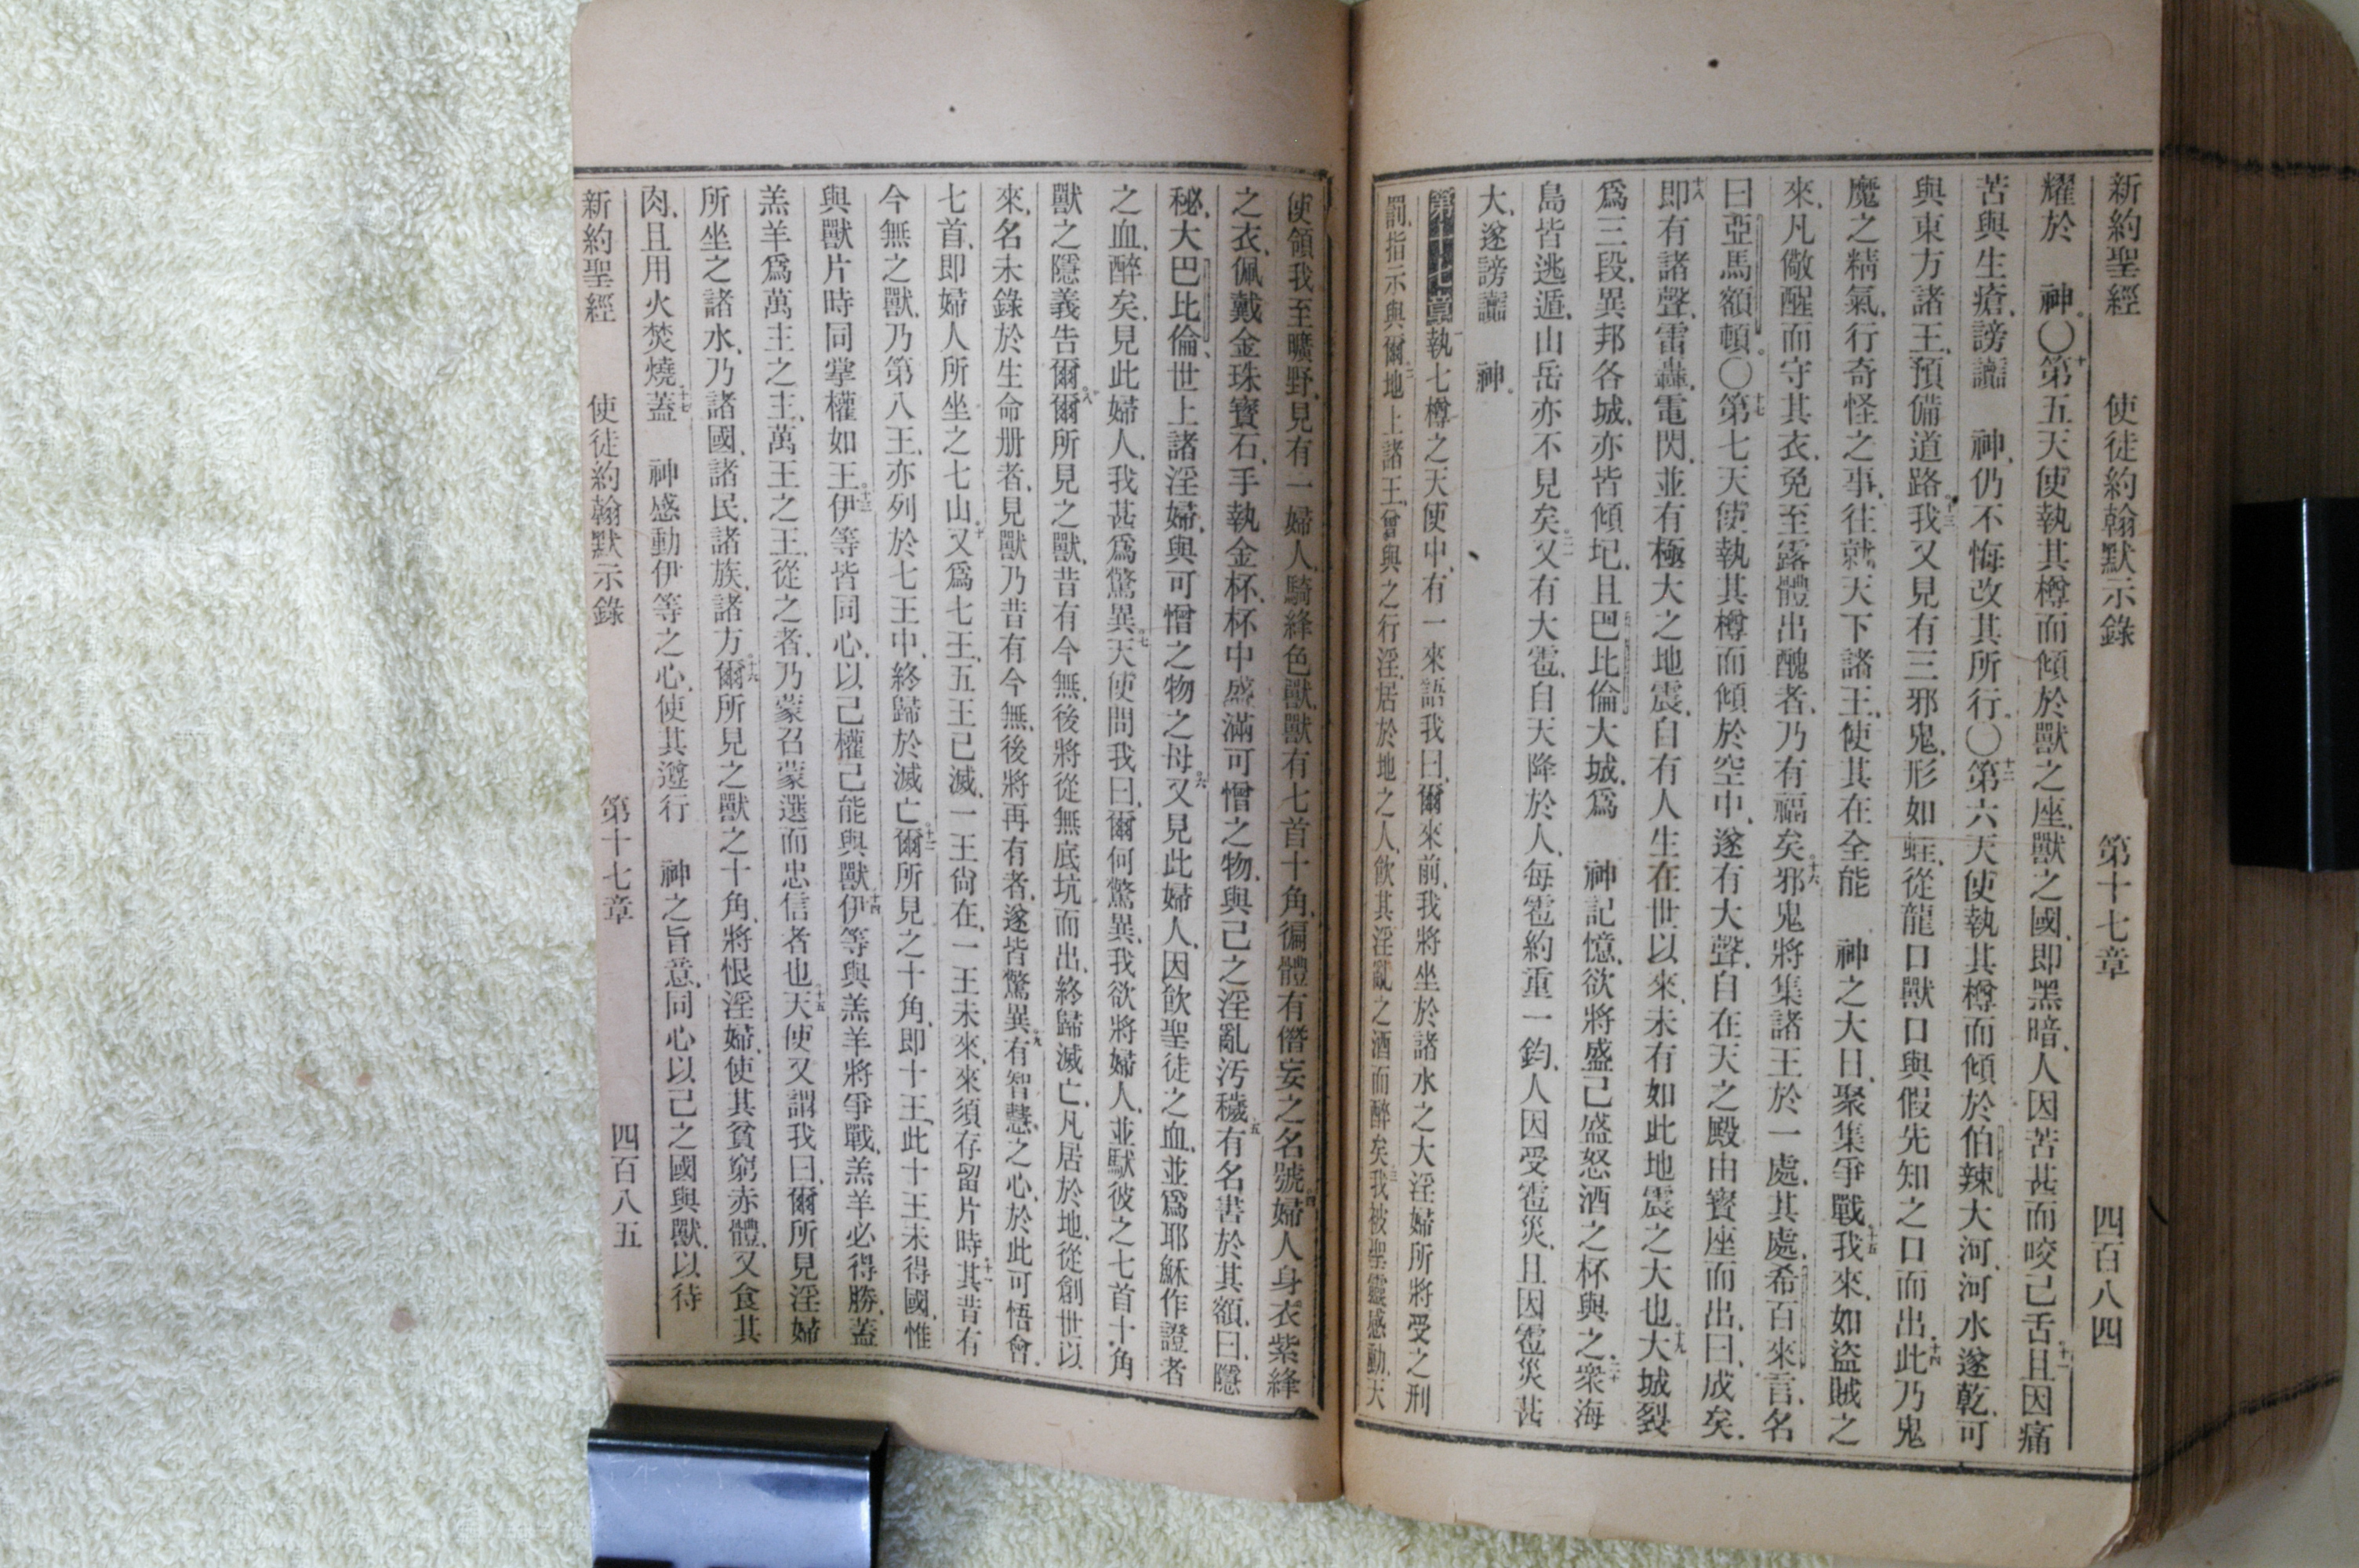 新約聖經　使徒約翰默示錄　第十七章　四百八四
耀於　神。〇十第五天使執其樽而傾於獸之座、獸之國、即黑暗、人因苦甚而咬己舌、十一且因痛
苦與生瘡、謗讟　神、仍不悔改其所行。〇十二第六天使執其樽而傾於伯辣大河、河水遂乾、可
與東方諸王、預備道路。十三我又見有三邪鬼、形如蛙、從龍口獸口與假先知之口而出。十四此乃鬼
魔之精氣、行奇怪之事、往就天下諸王、使其在全能　神之大日、聚集爭戰。十五我來、如盜賊之
來、凡儆醒而守其衣、免至露體出醜者、乃有福矣。十六邪鬼將集諸王於一處、其處、希百來言、名
曰亞馬額頓。〇十七第七天使執其樽而傾於空中、遂有大聲、自在天之殿由寶座而出、曰、成矣。
十八即有諸聲、雷轟、電閃、並有極大之地震、自有人生在世以來、未有如此地震之大也。十九大城裂
爲三段、異邦各城、亦皆傾圮、且巴比倫大城、爲　神記憶、欲將盛己盛怒酒之杯與之。二十衆海
島皆逃遁、山岳亦不見矣。二一又有大雹、自天降於人、每雹約重一鈞、人因受雹災、且因雹災甚
大、遂謗讟　神。
第十七章一執七樽之天使中、有一來語我曰、爾來前、我將坐於諸水之大淫婦所將受之刑
罰、指示與爾。二地上諸王、曾與之行淫、居於地之人、飲其淫亂之酒而醉矣。三我被聖靈感動、天
使領我至曠野、見有一婦人、騎絳色獸、獸有七首十角、徧體有僭妄之名號。四婦人身衣紫絳
之衣、佩戴金珠寶石、手執金杯、杯中盛滿可憎之物、與己之淫亂汚穢。五有名書於其額、曰、隱
秘、大巴比倫、世上諸淫婦、與可憎之物之母。六又見此婦人、因飲聖徒之血、並爲耶穌作證者
之血、醉矣、見此婦人、我甚爲驚異。七天使問我曰、爾何驚異、我欲將婦人、並馱彼之七首十角
獸之隱義告爾。八爾所見之獸、昔有今無、後將從無底坑而出、終歸滅亡、凡居於地、從創世以
來、名未錄於生命册者、見獸乃昔有今無、後將再有者、遂皆驚異。九有智慧之心、於此可悟會。
七首、即婦人所坐之七山。十又爲七王、五王已滅、一王尙在、一王未來、來須存留片時。十一其昔有
今無之獸、乃第八王、亦列於七王中、終歸於滅亡。十二爾所見之十角、即十王、此十王未得國、惟
與獸片時同掌權如王。十三伊等皆同心、以己權己能與獸。十四伊等與羔羊將爭戰、羔羊必得勝、蓋
羔羊爲萬主之主、萬王之王、從之者、乃蒙召蒙選而忠信者也。十五天使又謂我曰、爾所見淫婦
所坐之諸水、乃諸國、諸民、諸族、諸方。十六爾所見之獸之十角、將恨淫婦、使其貧窮赤體、又食其
肉、且用火焚燒。十七蓋　神感動伊等之心、使其遵行　神之旨意、同心以己之國與獸、以待
新約聖經　使徒約翰默示錄　第十七章　四百八五